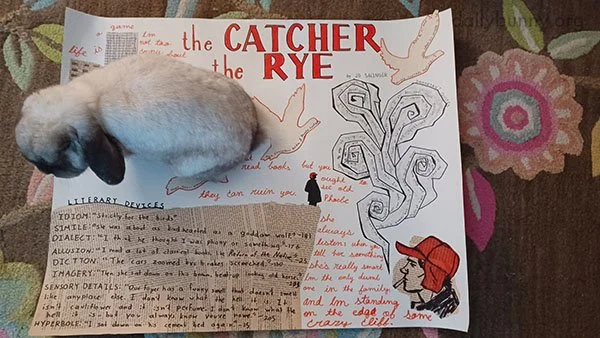 dailybunny.org
a game
life is
Im
not too
the CATCHER
the RYE
by JD SALINGER
read books but you
they can ruin you
ought to
see old
Phoebe
she
always
listens when you
tell her something
she's really smart
Im the only dumb
one in the family
and Im standing
on the edge of some
crazy cliff.
LITERARY DEVICES
IDIOM: "Strictly for the birds"
SIMILE: "She was about as kindhearted as a goddam wolf" -181
DIALECT: "I think he thought I was phony or something"
ALLUSION: "I read a lot of classical books, like Return of the Native"
DICTION: "The cars zoomed by, brakes screeched"
IMAGERY: "Then she sat down on this brown, beat-up looking old horse"
SENSORY DETAILS: "Our foyer has a funny smell that doesn't smell
like anyplace else. I don't know what the hell it is. It
isn't cauliflower and it isn't perfume I don't know what the
hell it is but you always know you're home" -205
HYPERBOLE: "I sat down on his cement bed again"